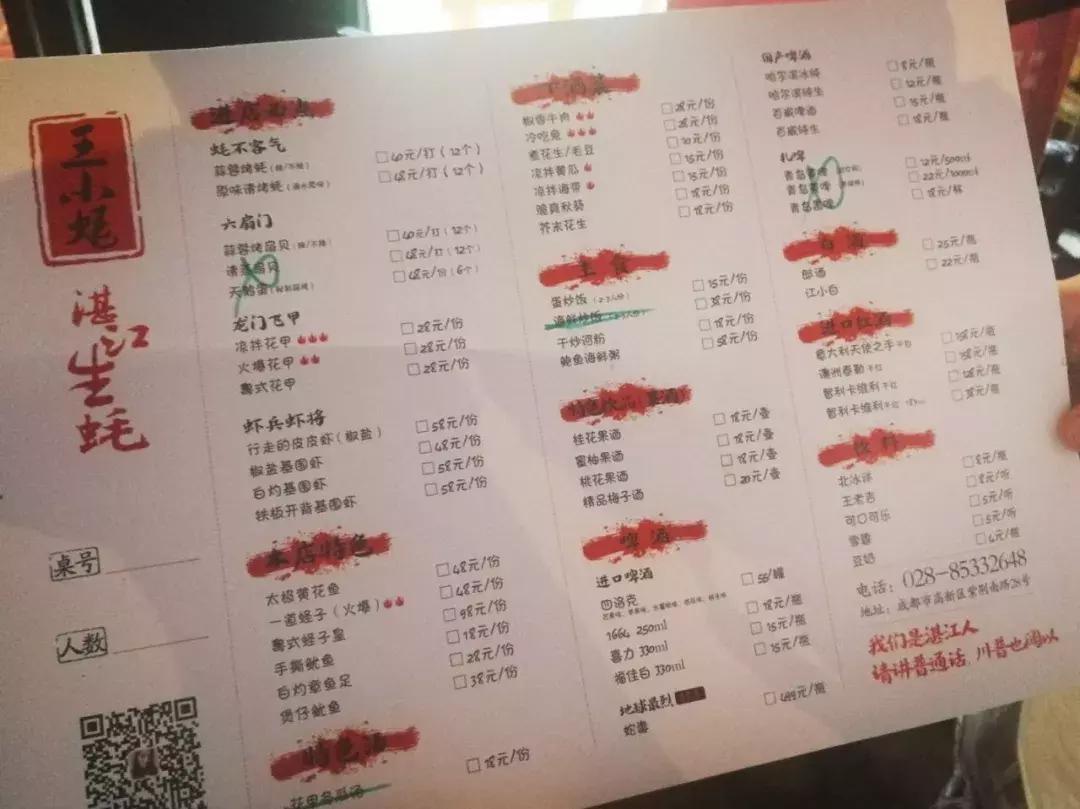 王小蚝
湛江生蚝
桌号
人数
进店必点
蚝不客气
蒜蓉烤蚝(辣/不辣) 40元/打(12个)
原味清烤蚝 48元/打(12个)
六扇门
蒜蓉烤扇贝(辣/不辣) 40元/打(12个)
清蒸扇贝 48元/打(12个)
天鹅蛋 48元/份(6个)
龙门飞甲
凉拌花甲 28元/份
火爆花甲 28元/份
粤式花甲 28元/份
虾兵虾将
行走的皮皮虾(椒盐) 58元/份
椒盐基围虾 48元/份
白灼基围虾 58元/份
铁板开背基围虾 48元/份
本店特色
太极黄花鱼 48元/份
一道蛏子(火爆) 48元/份
粤式蛏子皇 98元/份
手撕鱿鱼 18元/份
白灼章鱼足 28元/份
煲仔鱿鱼 38元/份
特色汤
花甲冬瓜汤 18元/份
下酒菜
椒香牛肉 28元/份
冷吃兔 28元/份
煮花生/毛豆 10元/份
凉拌黄瓜 15元/份
凉拌海带 15元/份
脆爽秋葵 18元/份
芥末花生 18元/份
主食
蛋炒饭(2-3人份) 15元/份
海鲜炒饭(2-3人份) 38元/份
干炒河粉 18元/份
鲍鱼海鲜粥 58元/份
特色饮品(果酒)
桂花果酒 18元/壶
蜜柚果酒 18元/壶
桃花果酒 18元/壶
精品梅子酒 20元/壶
啤酒
进口啤酒
四洛克 55/罐
1664 250ml 18元/瓶
喜力 330ml 15元/瓶
福佳白 330ml 15元/瓶
地球最烈
蛇毒 499元/瓶
国产啤酒
哈尔滨冰纯 8元/瓶
哈尔滨纯生 12元/瓶
百威啤酒 15元/瓶
百威纯生 18元/瓶
扎啤
青岛 12元/500ml
青岛 22元/1000ml
青岛黑啤 18元/杯
白酒
郎酒 25元/瓶
江小白 22元/瓶
进口红酒
意大利天使之手干红
澳洲泰勒干红
智利卡维利干红
智利卡维利干红
饮料
北冰洋 8元/瓶
王老吉 8元/听
可口可乐 5元/听
雪碧 5元/听
豆奶 4元/瓶
电话：028-85332648
地址：成都市高新区紫荆南路28号
我们是湛江人
请讲普通话，川普也阔以